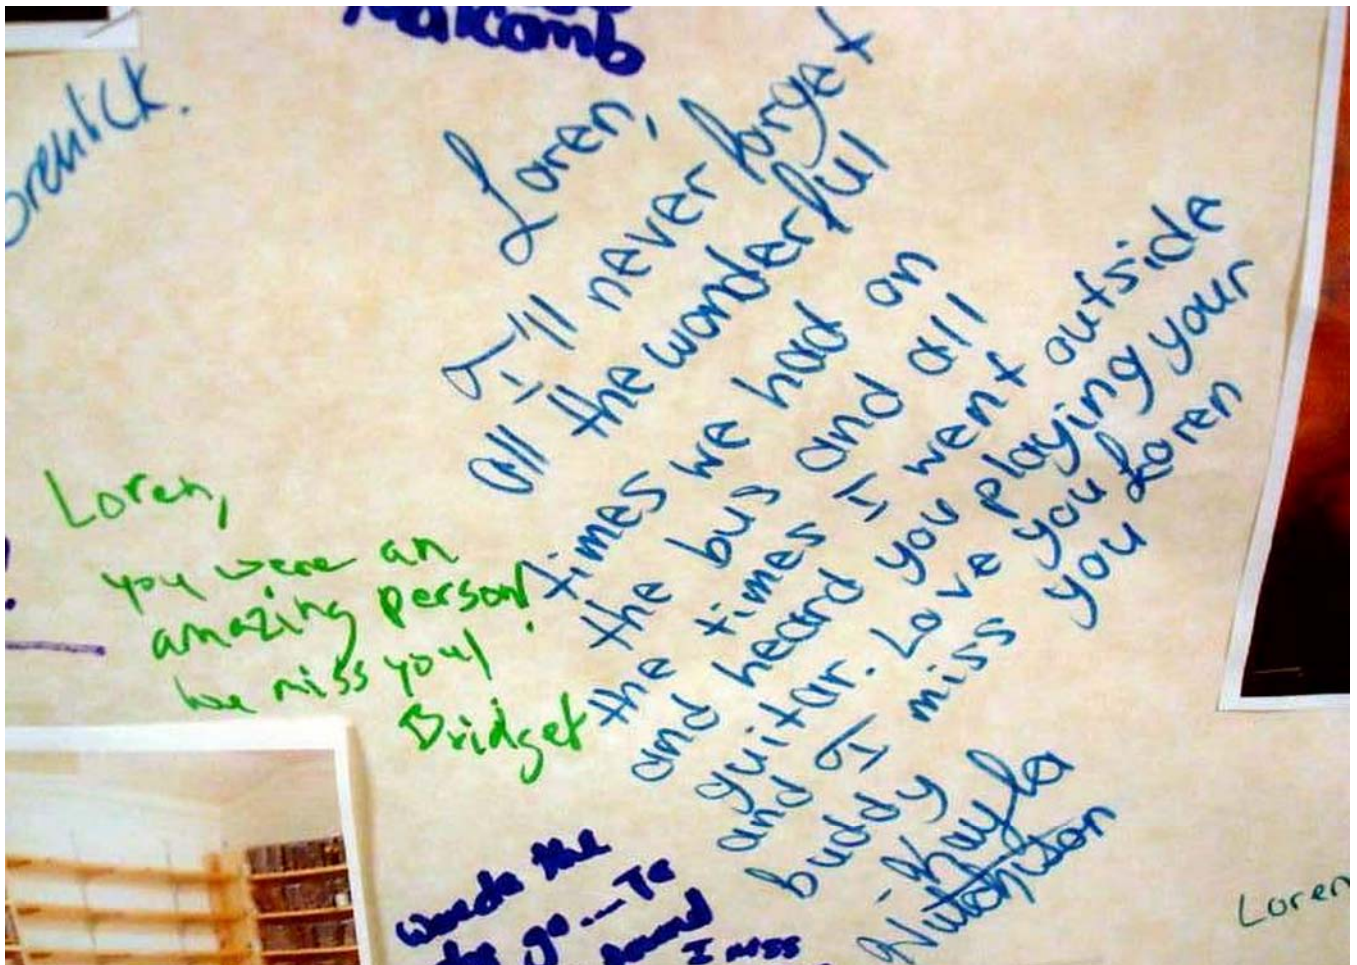 Malcomb
Loren,
I'll never forget
all the wonderful
times we had on
the bus and all
the times I went outside
and heard you playing your
guitar. Love you Loren
and I miss you
buddy
- Kayla
Hutchison
Loren,
you were an
amazing person!
we miss you!
Bridget
words the
go... To
I miss
Loren